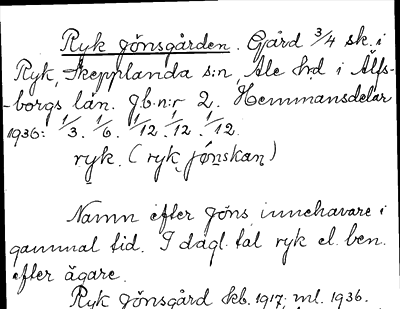 Ryk Jönsgården. Gård 3/4 sk. i
Ryk, Skepplanda s:n, Ale hd i Älfs-
-borgs län. Jb.n:r 2. Hemmansdelar
1936: 1/3. 1/6. 1/12. 1/12. 1/12.
ryk. (ryk, jönskan)
Namn efter Jöns, innehavare i
gammal tid. I dagl. tal ryk el. ben.
efter ägare.
Ryk Jönsgård kb. 1917; ml. 1936.